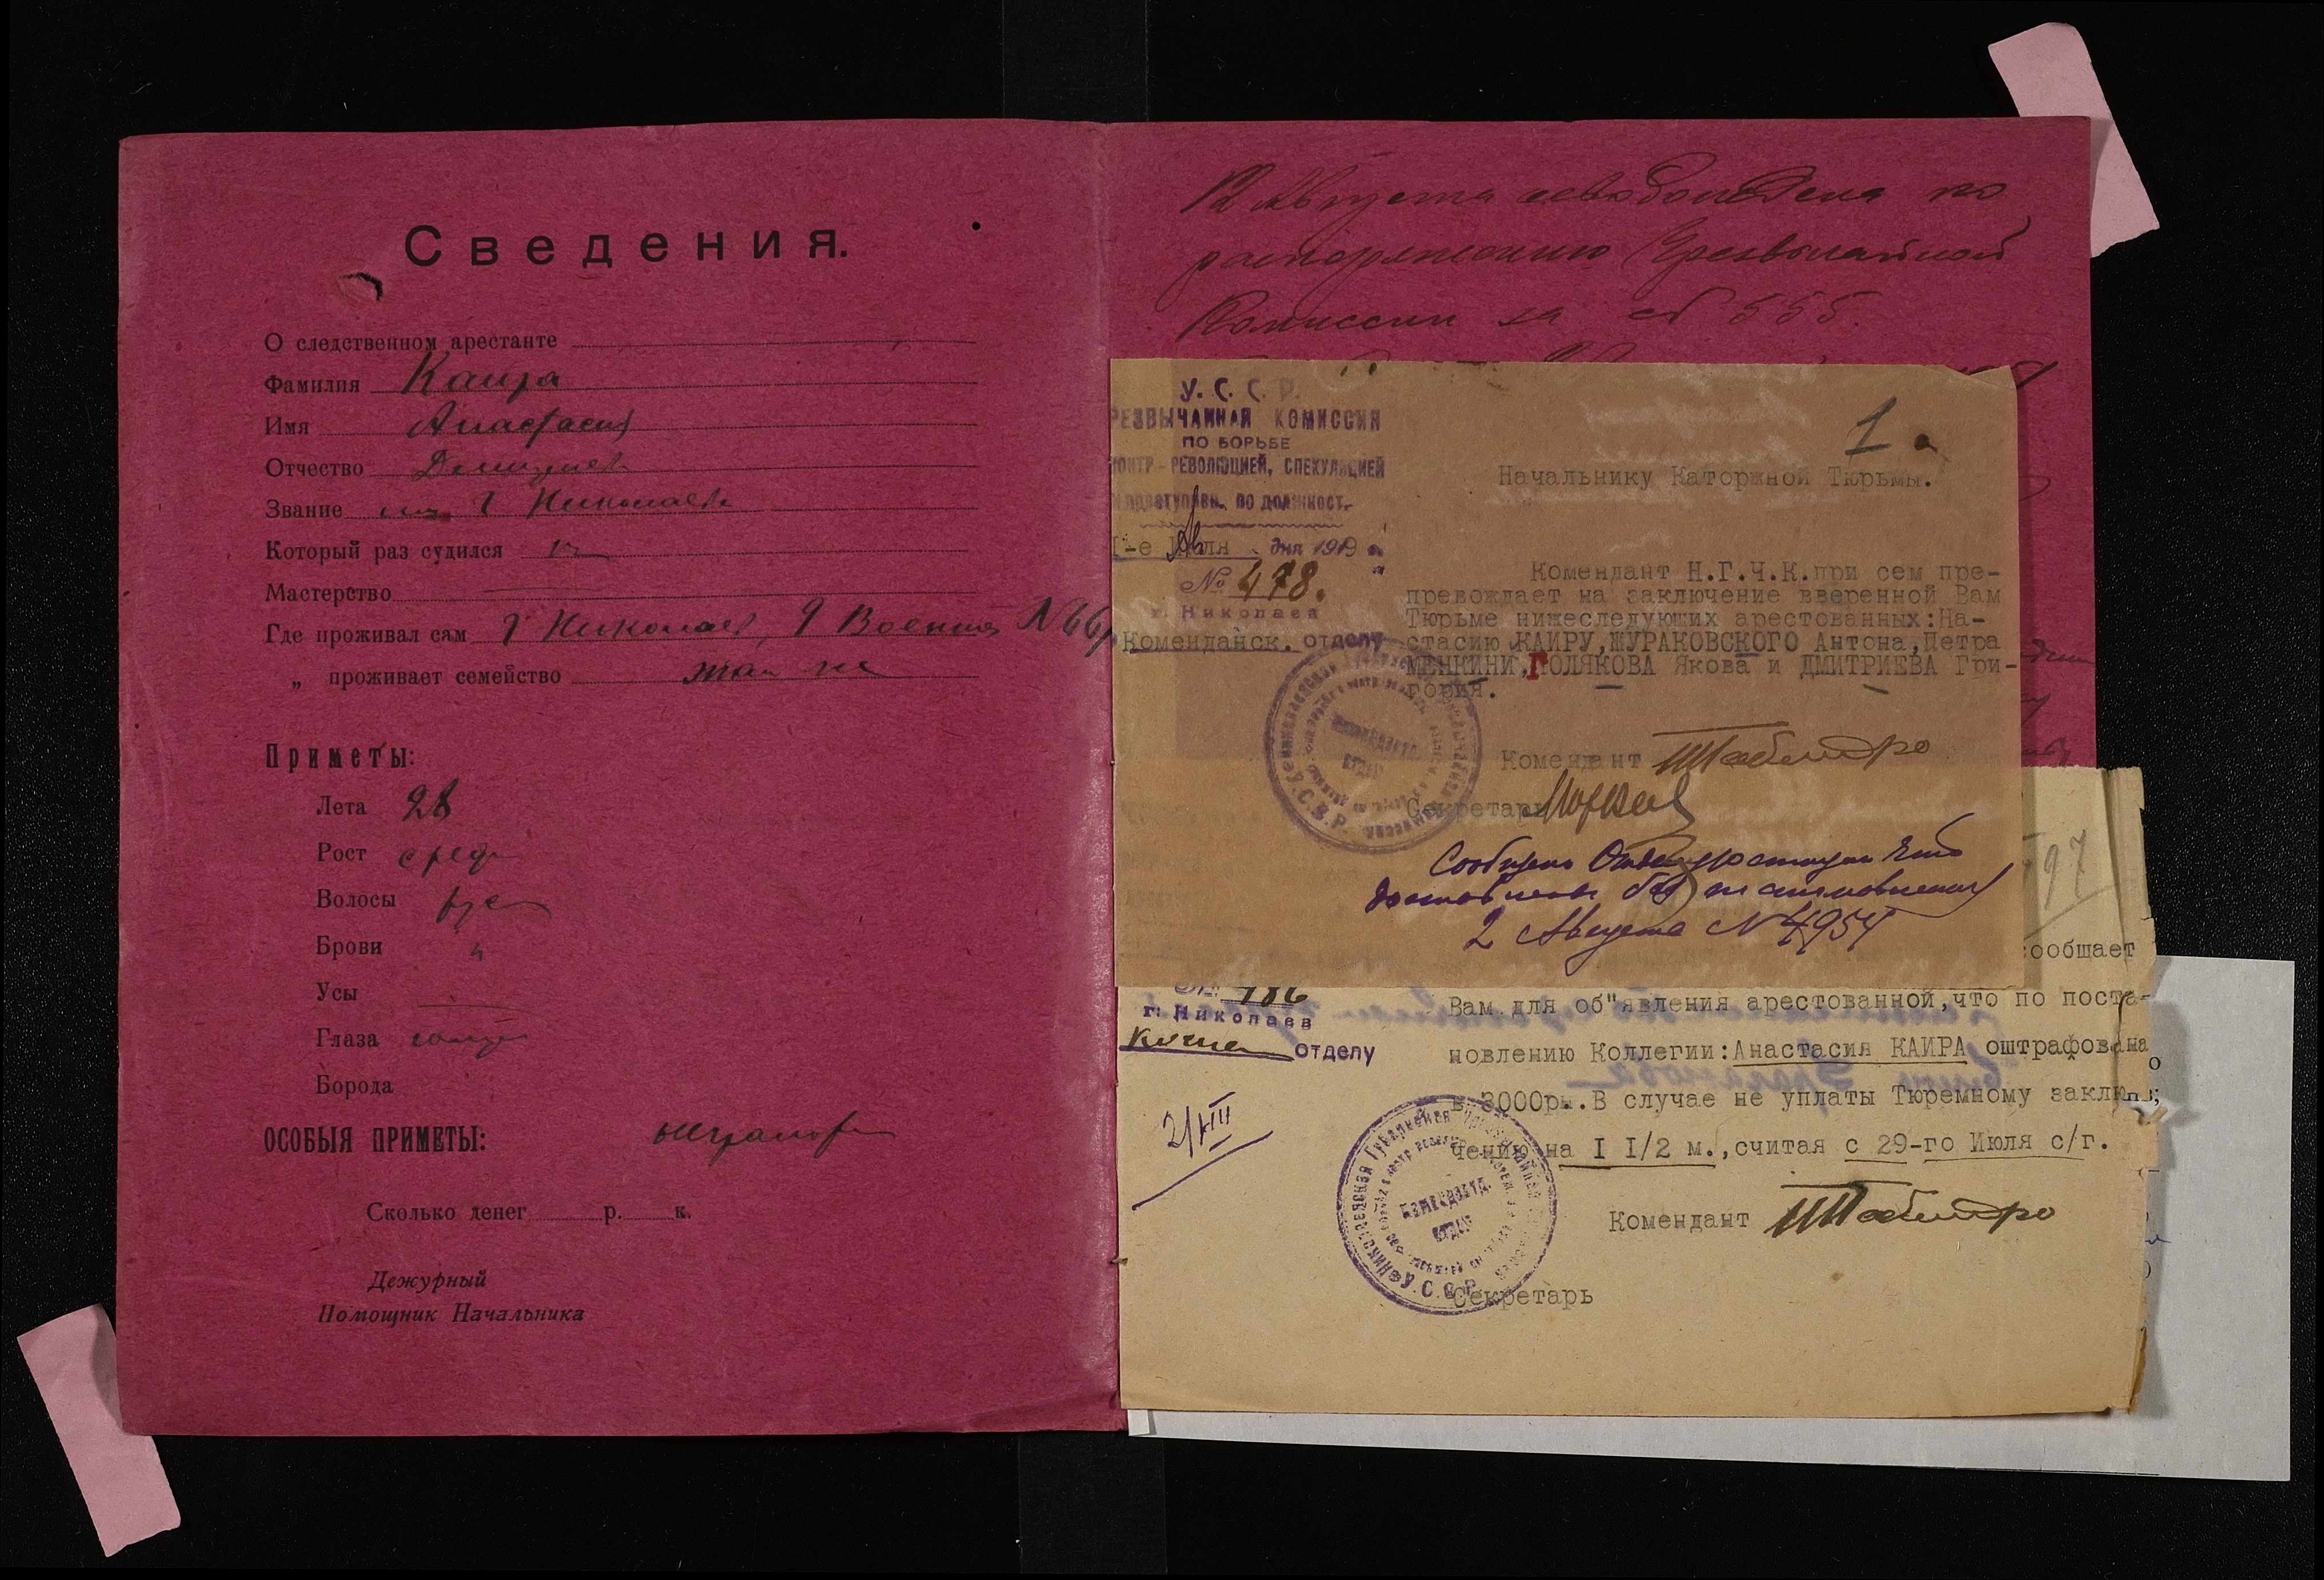 Сведения.
О следственном арестанте
Фамилия Каира
Имя Анастасия
Отчество
Звание г Николаева
Который раз судился
Мастерство
Где проживал сам г Николаев, 9 Военная № 66
„ проживает семейство там же
Приметы:
Лета 28
Рост сред
Волосы рус
Брови "
Усы
Глаза
Борода
ОСОБЫЯ ПРИМЕТЫ: неграмот
Сколько денег р. к.
Дежурный
Помощник Начальника
12 Августа освобождена по
распоряжению Чрезвычайной
Комиссии за № 555.
У. С. С. Р.
РЕЗВЫЧАЙНАЯ КОМИССИЯ
ПО БОРЬБЕ
ОНТР-РЕВОЛЮЦИЕЙ, СПЕКУЛЯЦИЕЙ
ПО ДОЛЖНОСТ.
I-е Ав дня 1919 г.
№ 478.
г. Николаев
Комендансk. отделу
1
Начальнику Каторжной Тюрьмы.
Комендант Н.Г.Ч.К.при сем пре-
превождает на заключение вверенной Вам
Тюрьме нижеследующих арестованных:На-
стасию КАИРУ,ЖУРАКОВСКОГО Антона,Петра
МЕНКИНИ,ПОЛЯКОВА Якова и ДМИТРИЕВА Гри-
гория.
Комендант
Секретарь
Сообщено что
доставлены без постановления
2 Августа № 4954
197
сообщает
№ 486
г. Николаев
отделу
Вам для об"явления арестованной,что по поста-
новлению Коллегии:Анастасия КАИРА оштрафована
в 3000рн.В случае не уплаты Тюремному заклю-
чению на I I/2 м.,считая с 29-го Июля с/г.
2/VIII
Комендант
Секретарь